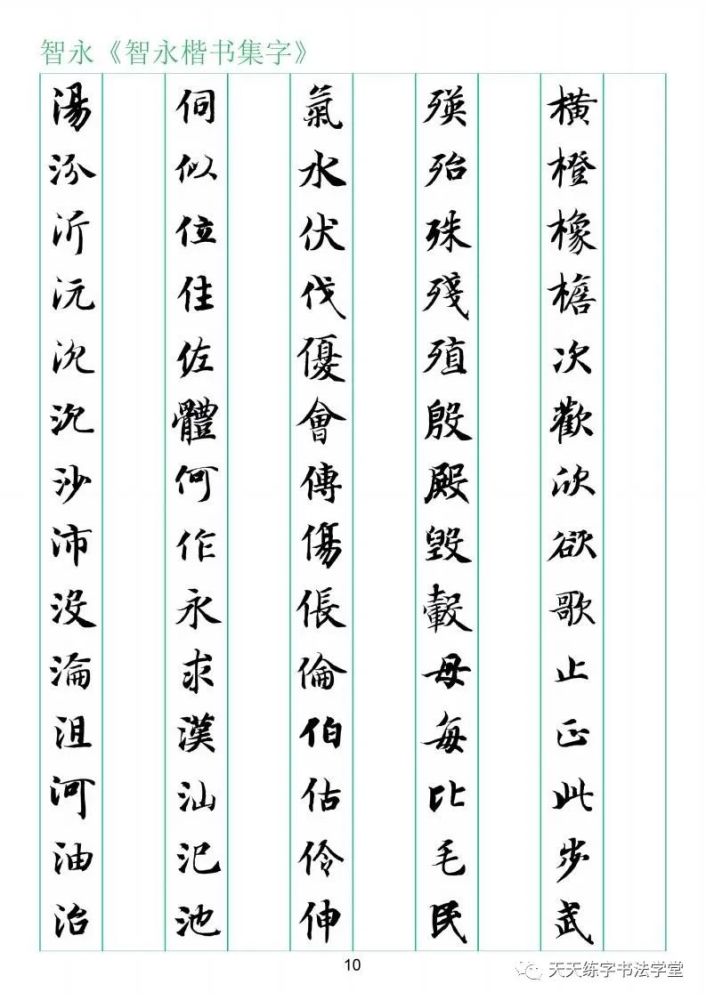 智永《智永楷书集字》
橫橙橡檐次歡欣欲歌止正此步武
殃殆殊殘殖殷殿毀轂母每比毛民
氣水伏伐優會傳傷倀倫伯估伶伸
伺似位住佐體何作永求漢汕汜池
湯汾沂沅沈沉沙沛沒淪沮河油治
10
天天练字书法学堂